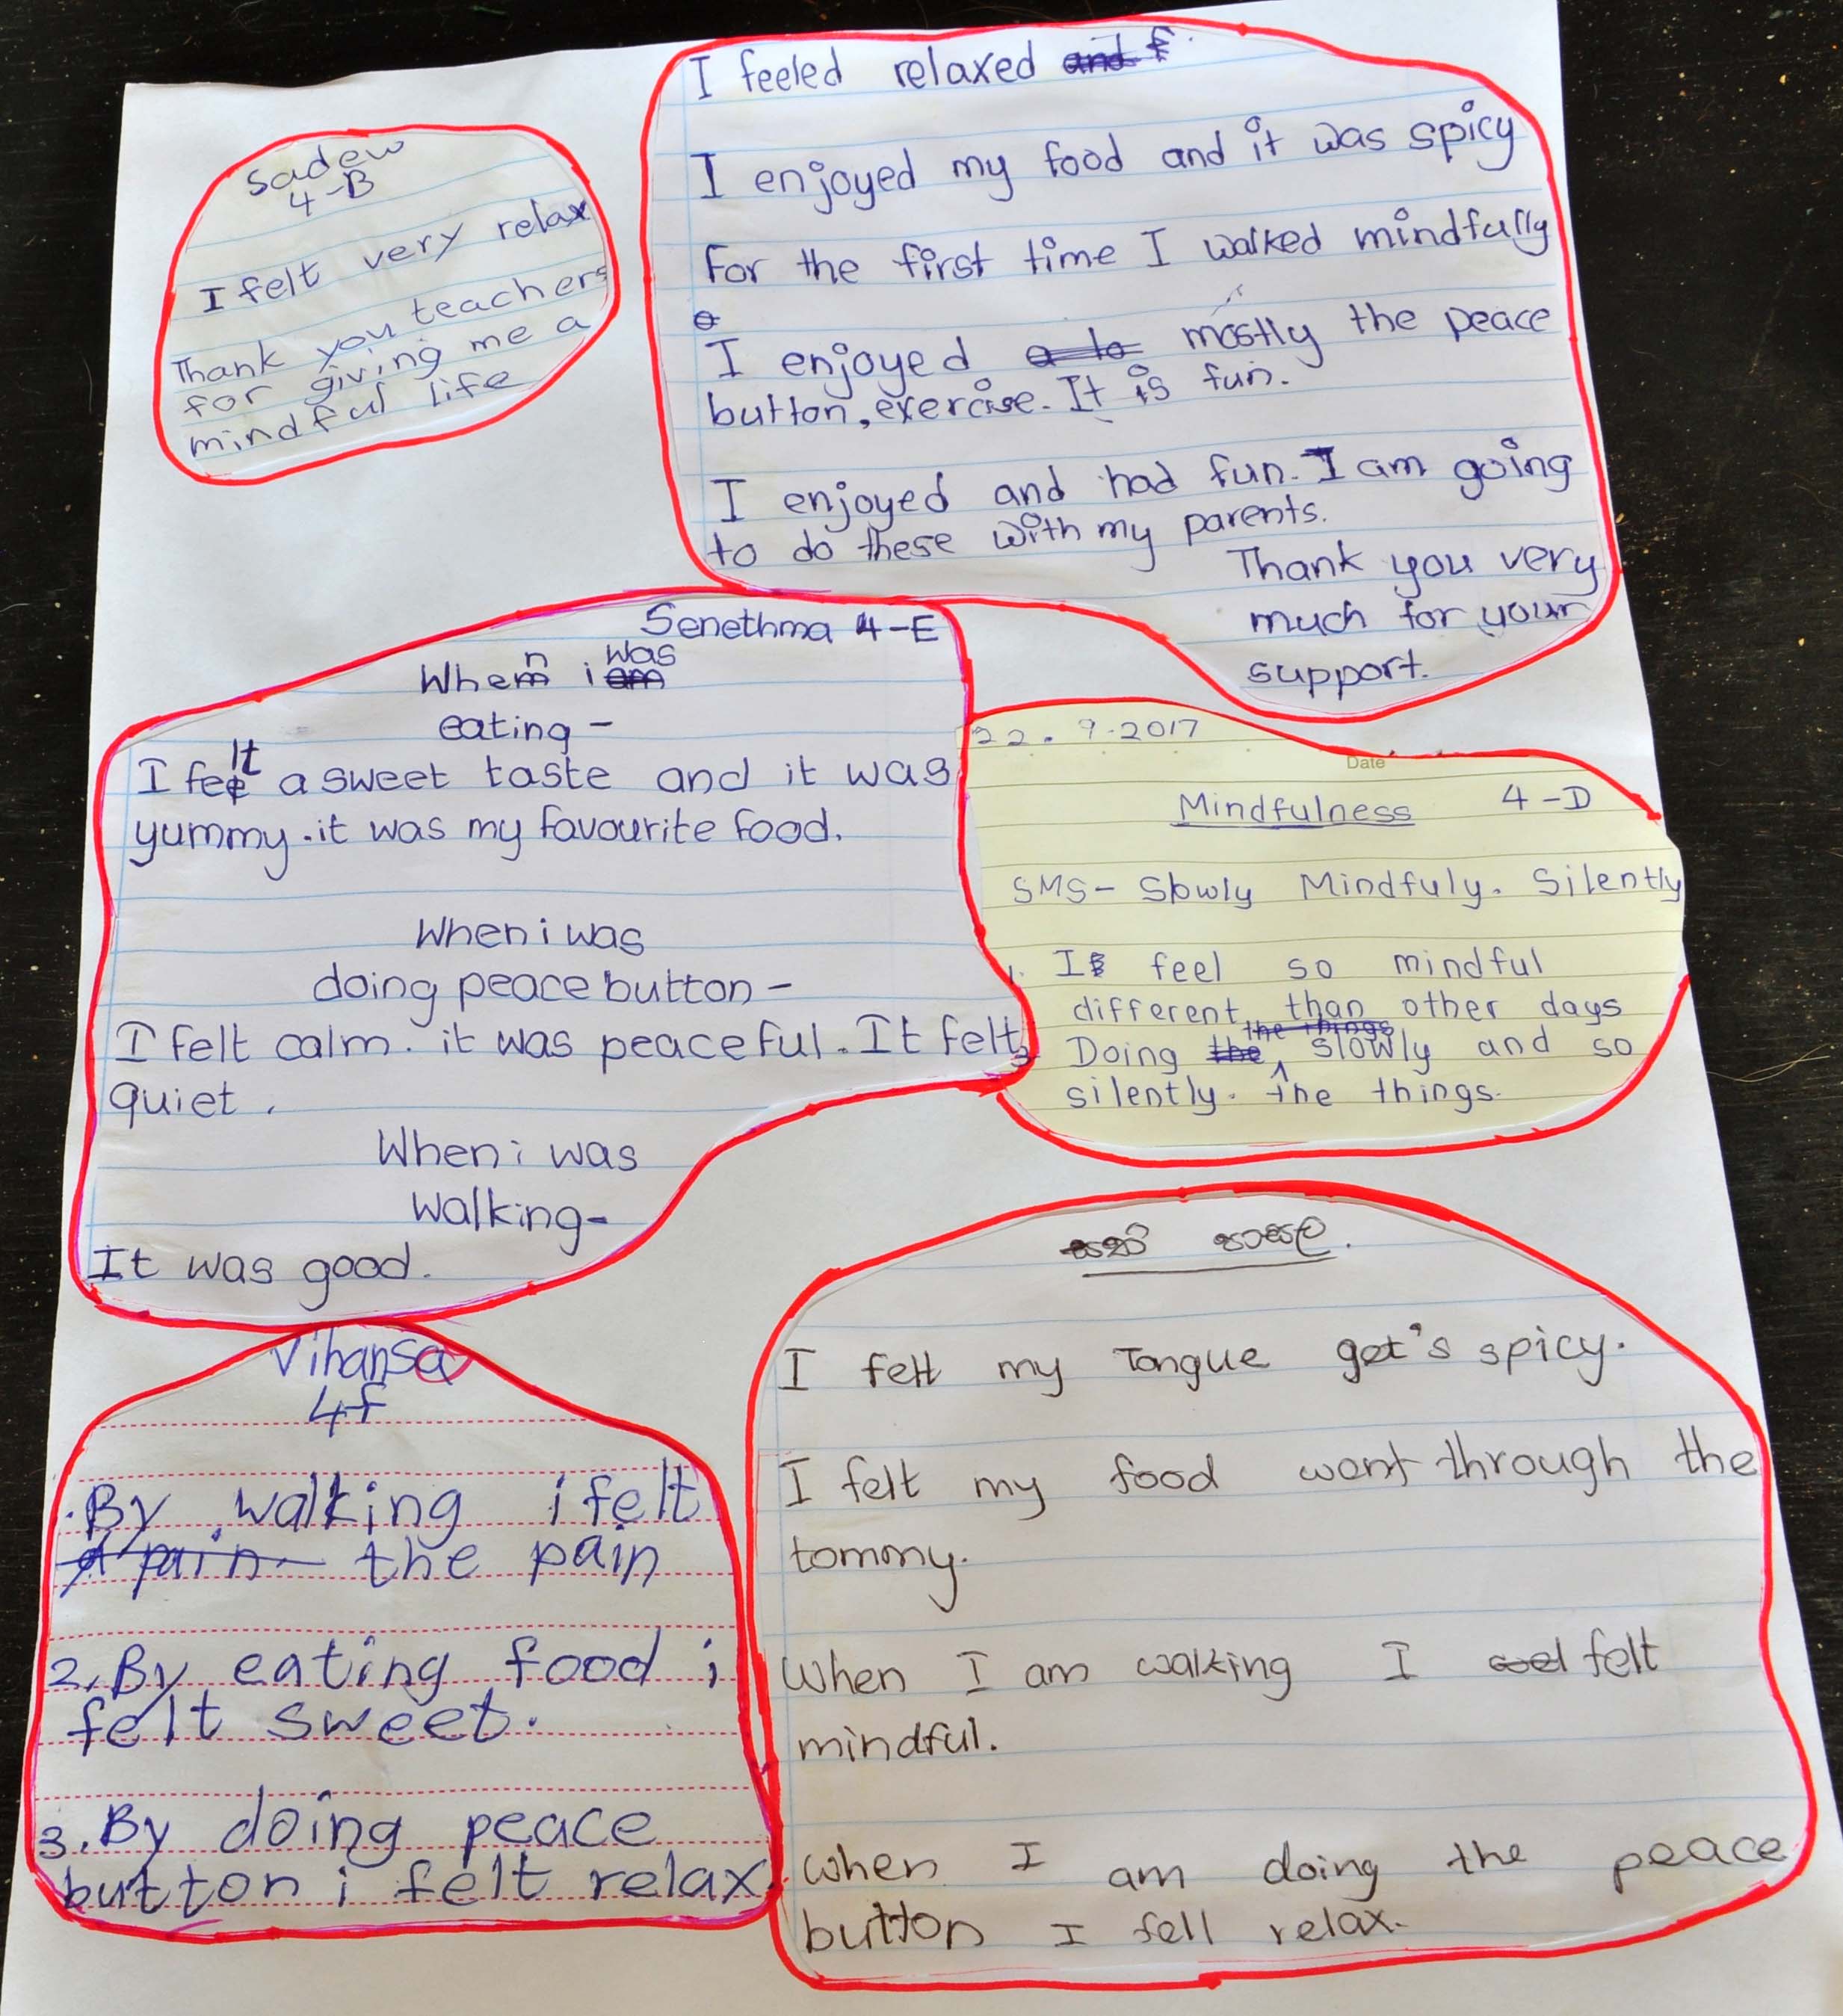 Sadew
4-B
I felt very relax
Thank you teachers
for giving me a
mindful life
I feeled relaxed and f.
I enjoyed my food and it was spicy
For the first time I walked mindfully
I enjoyed a lo mostly the peace
button, exercise. It is fun.
I enjoyed and had fun. I am going
to do these with my parents.
Thank you very
much for your
support.
Senethma 4-E
When i was
eating -
I felt a sweet taste and it was
yummy. it was my favourite food.
When i was
doing peace button -
I felt calm. it was peaceful. It felt
quiet.
When i was
Walking-
It was good.
22. 9.2017
Date
Mindfulness 4-D
SMS- Slowly Mindfuly. Silently
1. I feel so mindful
different than other days
the things
Doing the slowly and so
silently. the things.
Vihansa
4f
. By walking i felt
A pain the pain
2. By eating food i
felt sweet.
3. By doing peace
button i felt relax.
සති පාසල.
I felt my Tongue get's spicy.
I felt my food went through the
tommy.
When I am walking I felt
mindful.
When I am doing the peace
button I fell relax.